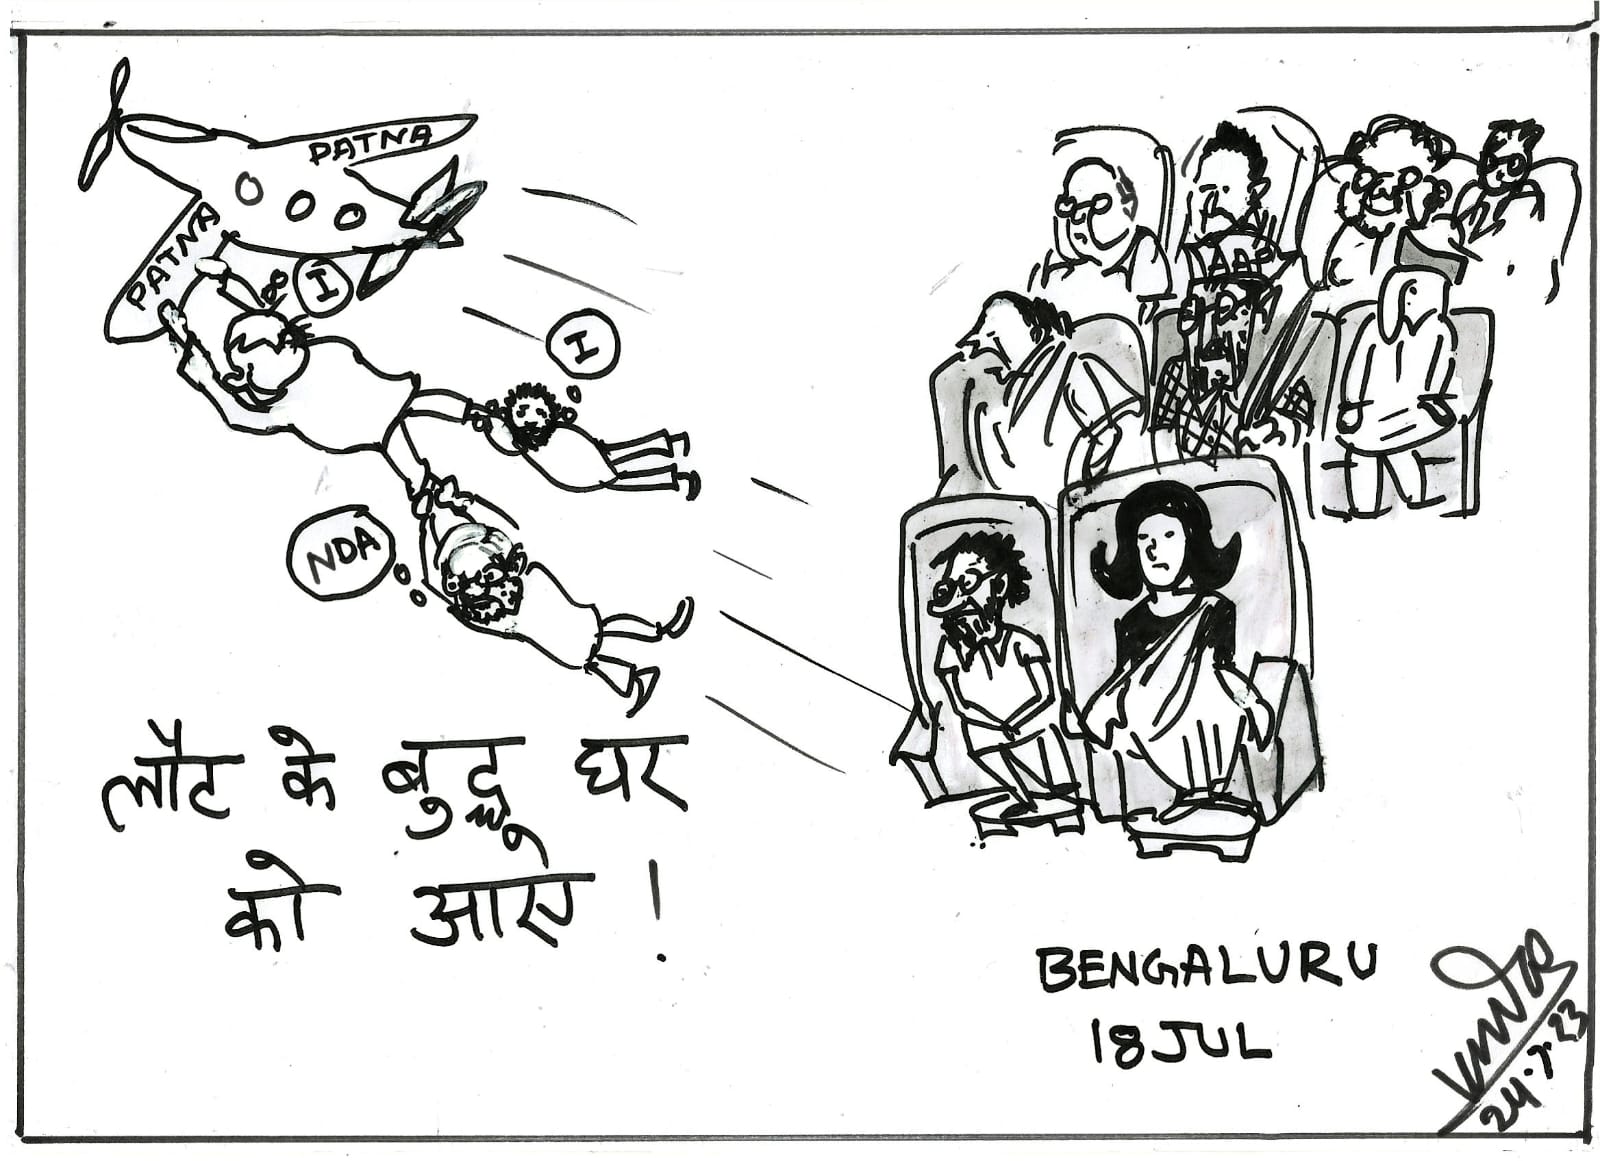 PATNA
PATNA
I
I
NDA
AAP
लौट के बुद्धू घर
को आए !
BENGALURU
18 JUL
24.7.23